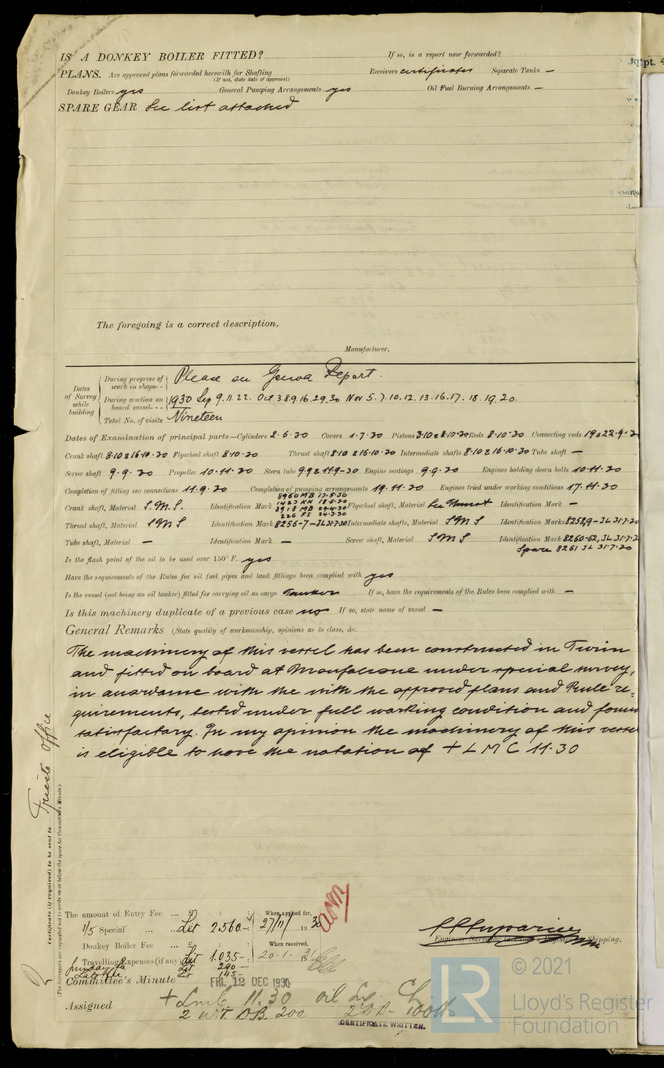 IS A DONKEY BOILER FITTED? If so, is a report now forwarded?
PLANS. Are approved plans forwarded herewith for Shafting Receivers certificates Separate Tanks —
(If not, state date of approval)
Donkey Boilers yes General Pumping Arrangements yes Oil Fuel Burning Arrangements —
SPARE GEAR See list attached
The foregoing is a correct description,
Manufacturer.
Dates of Survey while building
During progress of work in shops - - Please see Genoa Report.
During erection on board vessel - - - 1930 Sep 9.11.22. Oct 3.8.9.16.29.30 Nov 5.7.10.12.13.16.17.18.19.20
Total No. of visits Nineteen
Dates of Examination of principal parts—Cylinders 2.6.30 Covers 1.7.30 Pistons 3.10 & 8.10.30 Rods 8.10.30 Connecting rods 19 & 22.9.
Crank shaft 8.10 & 16.10.30 Flywheel shaft 8.10.30 Thrust shaft 8.10 & 16.10.30 Intermediate shafts 8.10 & 16.10.30 Tube shaft —
Screw shaft 9.9.30 Propeller 10.11.30 Stern tube 9.9 & 11.9.30 Engine seatings 9.9.30 Engines holding down bolts 10.11.30
Completion of fitting sea connections 11.9.30 Completion of pumping arrangements 19.11.30 Engines tried under working conditions 17.11.30
Crank shaft, Material S.M.S. Identification Mark Flywheel shaft, Material See Thrust Identification Mark —
Thrust shaft, Material SMS Identification Mark 8256-7-JL 31.7.30 Intermediate shafts, Material SMS Identification Marks 8258,9-JL 31.7.30
Tube shaft, Material — Identification Mark — Screw shaft, Material SMS Identification Mark 8260-62, JL 31.7.3
Spare 8261 JL 31.7.30
Is the flash point of the oil to be used over 150° F. yes
Have the requirements of the Rules for oil fuel pipes and tank fittings been complied with yes
Is the vessel (not being an oil tanker) fitted for carrying oil as cargo Tanker If so, have the requirements of the Rules been complied with —
Is this machinery duplicate of a previous case no If so, state name of vessel —
General Remarks (State quality of workmanship, opinions as to class, &c.
The machinery of this vessel has been constructed in Turin
and fitted on board at Monfalcone under special survey,
in accordance with the with the approved plans and Rule re-
quirements, tested under full working condition and found
satisfactory. In my opinion the machinery of this vessel
is eligible to have the notation of + LMC 11.30
Certificate (if required) to be sent to Trieste Office
(The Surveyors are requested not to write on or below the space for Committee's Minute.)
The amount of Entry Fee ... When applied for,
1/5 Special ... Lit 2.560 — 27/11/ 1930
Donkey Boiler Fee ... When received,
Travelling Expenses (if any) Lit 1.035 — 20.1.31
Lit 290 —
Late fee Lit 145 —
Committee's Minute FRI. 12 DEC 1930
Assigned + Lmc 11.30 oil Eng CL
2 W.T. D.B. 200 2 D.B.
CERTIFICATE WRITTEN.
Shipping.
© 2021
LR Lloyd's Register
Foundation